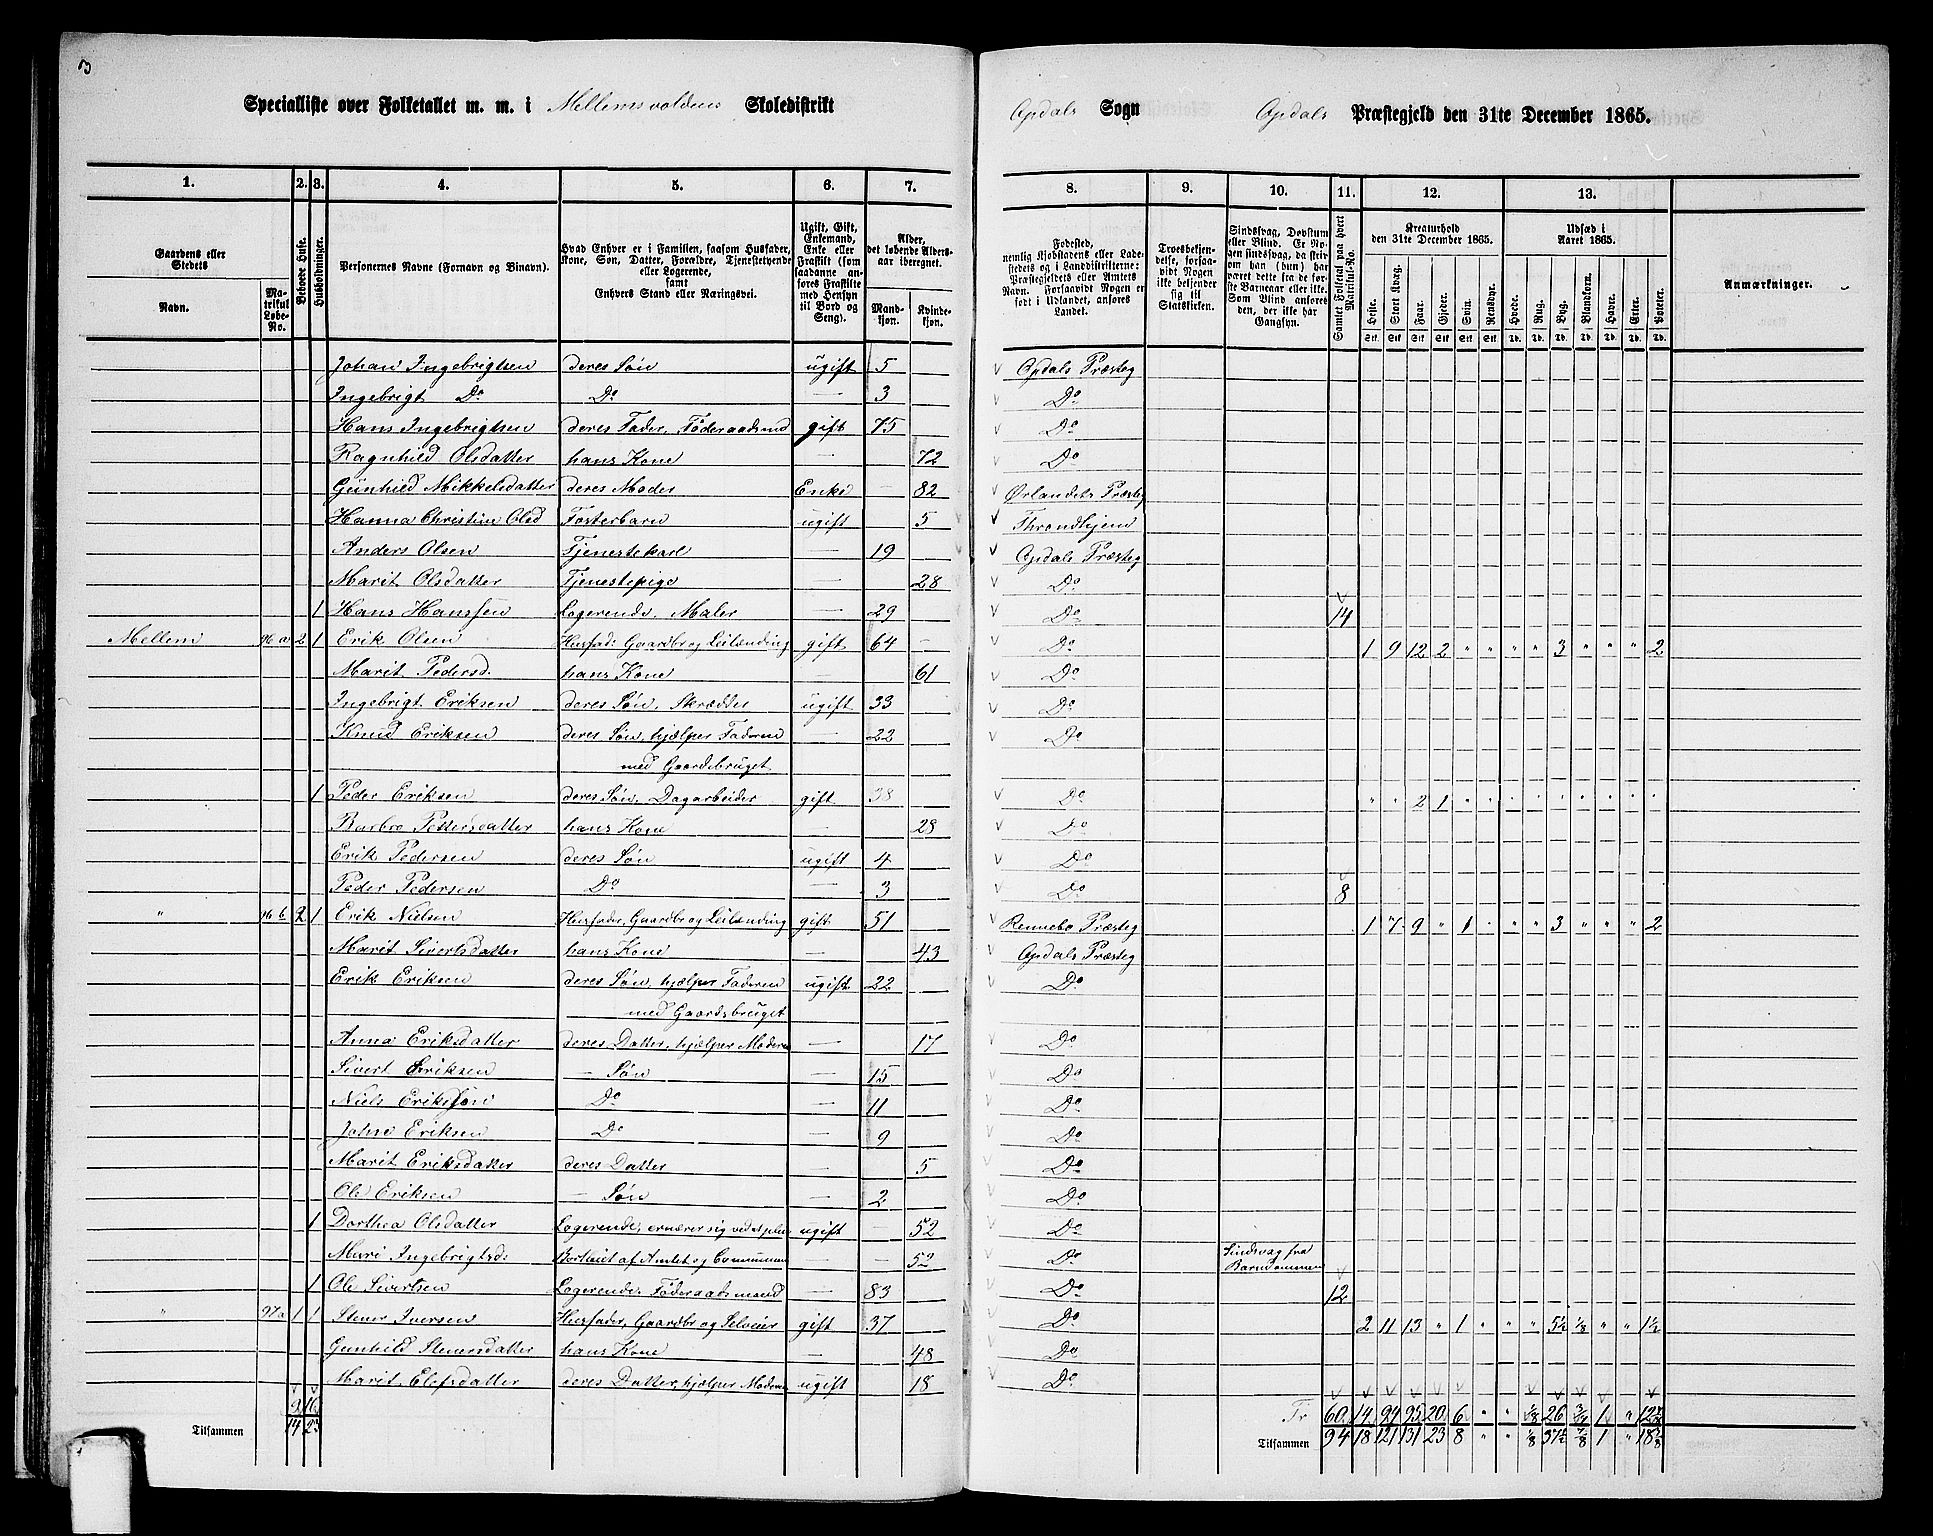 Specialliste over Folketallet m. m. i Mellemsvoldens Skoledistrikt
Opdals Sogn Opdals Præstegjeld den 31te December 1865.
1. 2. 3. 4. 5. 6. 7. 8. 9. 10. 11. 12. 13.
Gaardens eller Stedets
Navn.
Matrikul Løbe-No.
Beboede Huse.
Husholdninger.
Personernes Navne (Fornavn og Binavn).
Hvad Enhver er i Familien, saasom Husfader, Kone, Søn, Datter, Forældre, Tjenestetyende eller Logerende, samt Enhvers Stand eller Næringsvei.
Ugift, Gift, Enkemand, Enke eller Fraskilt (som saadanne anføres Fraskilte med Hensyn til Bord og Seng).
Alder, det løbende Aldersaar iberegnet.
Mandkjøn. Kvindekjøn.
Fødested, nemlig Kjøbstadens eller Ladestedets og i Landdistrikterne: Præstegjeldets eller Amtets Navn. Forsaavidt Nogen er født i Udlandet, anføres Landet.
Troesbekjendelse, forsaavidt Nogen ikke bekjender sig til Statskirken.
Sindssvag, Døvstum eller Blind. Er Nogen sindssvag, da om han (hun) har været dette fra de første Barneaar eller ikke. Som Blind anføres den, der ikke har Gangsyn.
Samlet Folketal paa hvert Matrikul-No.
Kreaturhold den 31te December 1865.
Heste. Stort Kvæg. Faar. Gjeder. Svin. Rensdyr.
Udsæd i Aaret 1865.
Hvede. Rug. Byg. Blandkorn. Havre. Erter. Poteter.
Anmærkninger.
Johan Ingebrigtsen deres Søn ugift 5 Opdals Præsteg
Ingebrigt Do Do — 3 Do
Hans Ingebrigtsen deres Fader, Føderaadsmd gift 75 Do
Ragnhild Olsdatter hans Kone — 72 Do
Gunhild Mikkelsdatter deres Moder Enke — 82 Ørlandets Præsteg
Hanna Christine Olsd Fosterbarn ugift 5 Throndhjem
Anders Olsen Tjenestekarl — 19 Opdals Præsteg
Marit Olsdatter Tjenestepige — 28 Do
1 Hans Hanssen Logerende, Maler — 29 Do 14
Mellem 96 a 2 1 Erik Olsen Husfad: Gaardbr og Leilænding gift 64 - Do 1 9 12 2 " " " " 3 " " " 2
Marit Pedersd. hans Kone — 61 Do
Ingebrigt Eriksen deres Søn, Skrædder ugift 33 Do
Knud Eriksen deres Søn, hjælper Faderen — 22 Do
med Gaardsbruget
1 Peder Eriksen deres Søn, Dagarbeider gift 38 Do " " 2 1 " " " " " " " " "
Barbro Pedersdatter hans Kone — 28 Do
Erik Pedersen deres Søn ugift 4 Do
Peder Pedersen Do — 3 Do 8
" 96 b 2 1 Erik Nielsen Husfader, Gaardbr og Leilænding gift 51 Rennebo Præsteg 1 7 9 " 1 " " " 3 " " " 2
Marit Sivertsdatter hans Kone — 43 Opdals Præsteg
Erik Eriksen deres Søn, hjælper Faderen ugift 22 Do
med Gaardsbruget
Anna Eriksdatter deres Datter, hjælper Moderen — 17 Do
Sivert Eriksen — Søn — 15 Do
Niels Erikssøn Do — 11 Do
John Eriksen Do — 9 Do
Marit Eriksdatter deres Datter — 5 Do
Ole Eriksen — Søn — 2 Do
1 Dorthea Olsdatter Logerende, ernærer sig ved ugift — 52 Do
Mari Ingebrigtsd: Bortleiet af Amtet og Communen — 52 Do Sindsvag fra Barndommen
1 Ole Sivertsen Logerende: Føderaadsmand — 83 Do 12
" 97 a 1 1 Stener Iversen Husfader, Gaardbr og Selveier gift 37 Do 2 11 13 " 1 " " " 5½ ⅛ " " 1½
Gunhild Stenersdatter hans Kone — 48 Do
Marit Olefsdatter deres Datter, hjælper Moderen ugift 18 Do
9 16 Tr 60 14 94 95 20 6 " " ⅛ 26 ¾ 1 "
Tilsammen 14 23 Tilsammen 94 18 121 131 23 8 " " ⅛ 37½ ⅞ 1 "